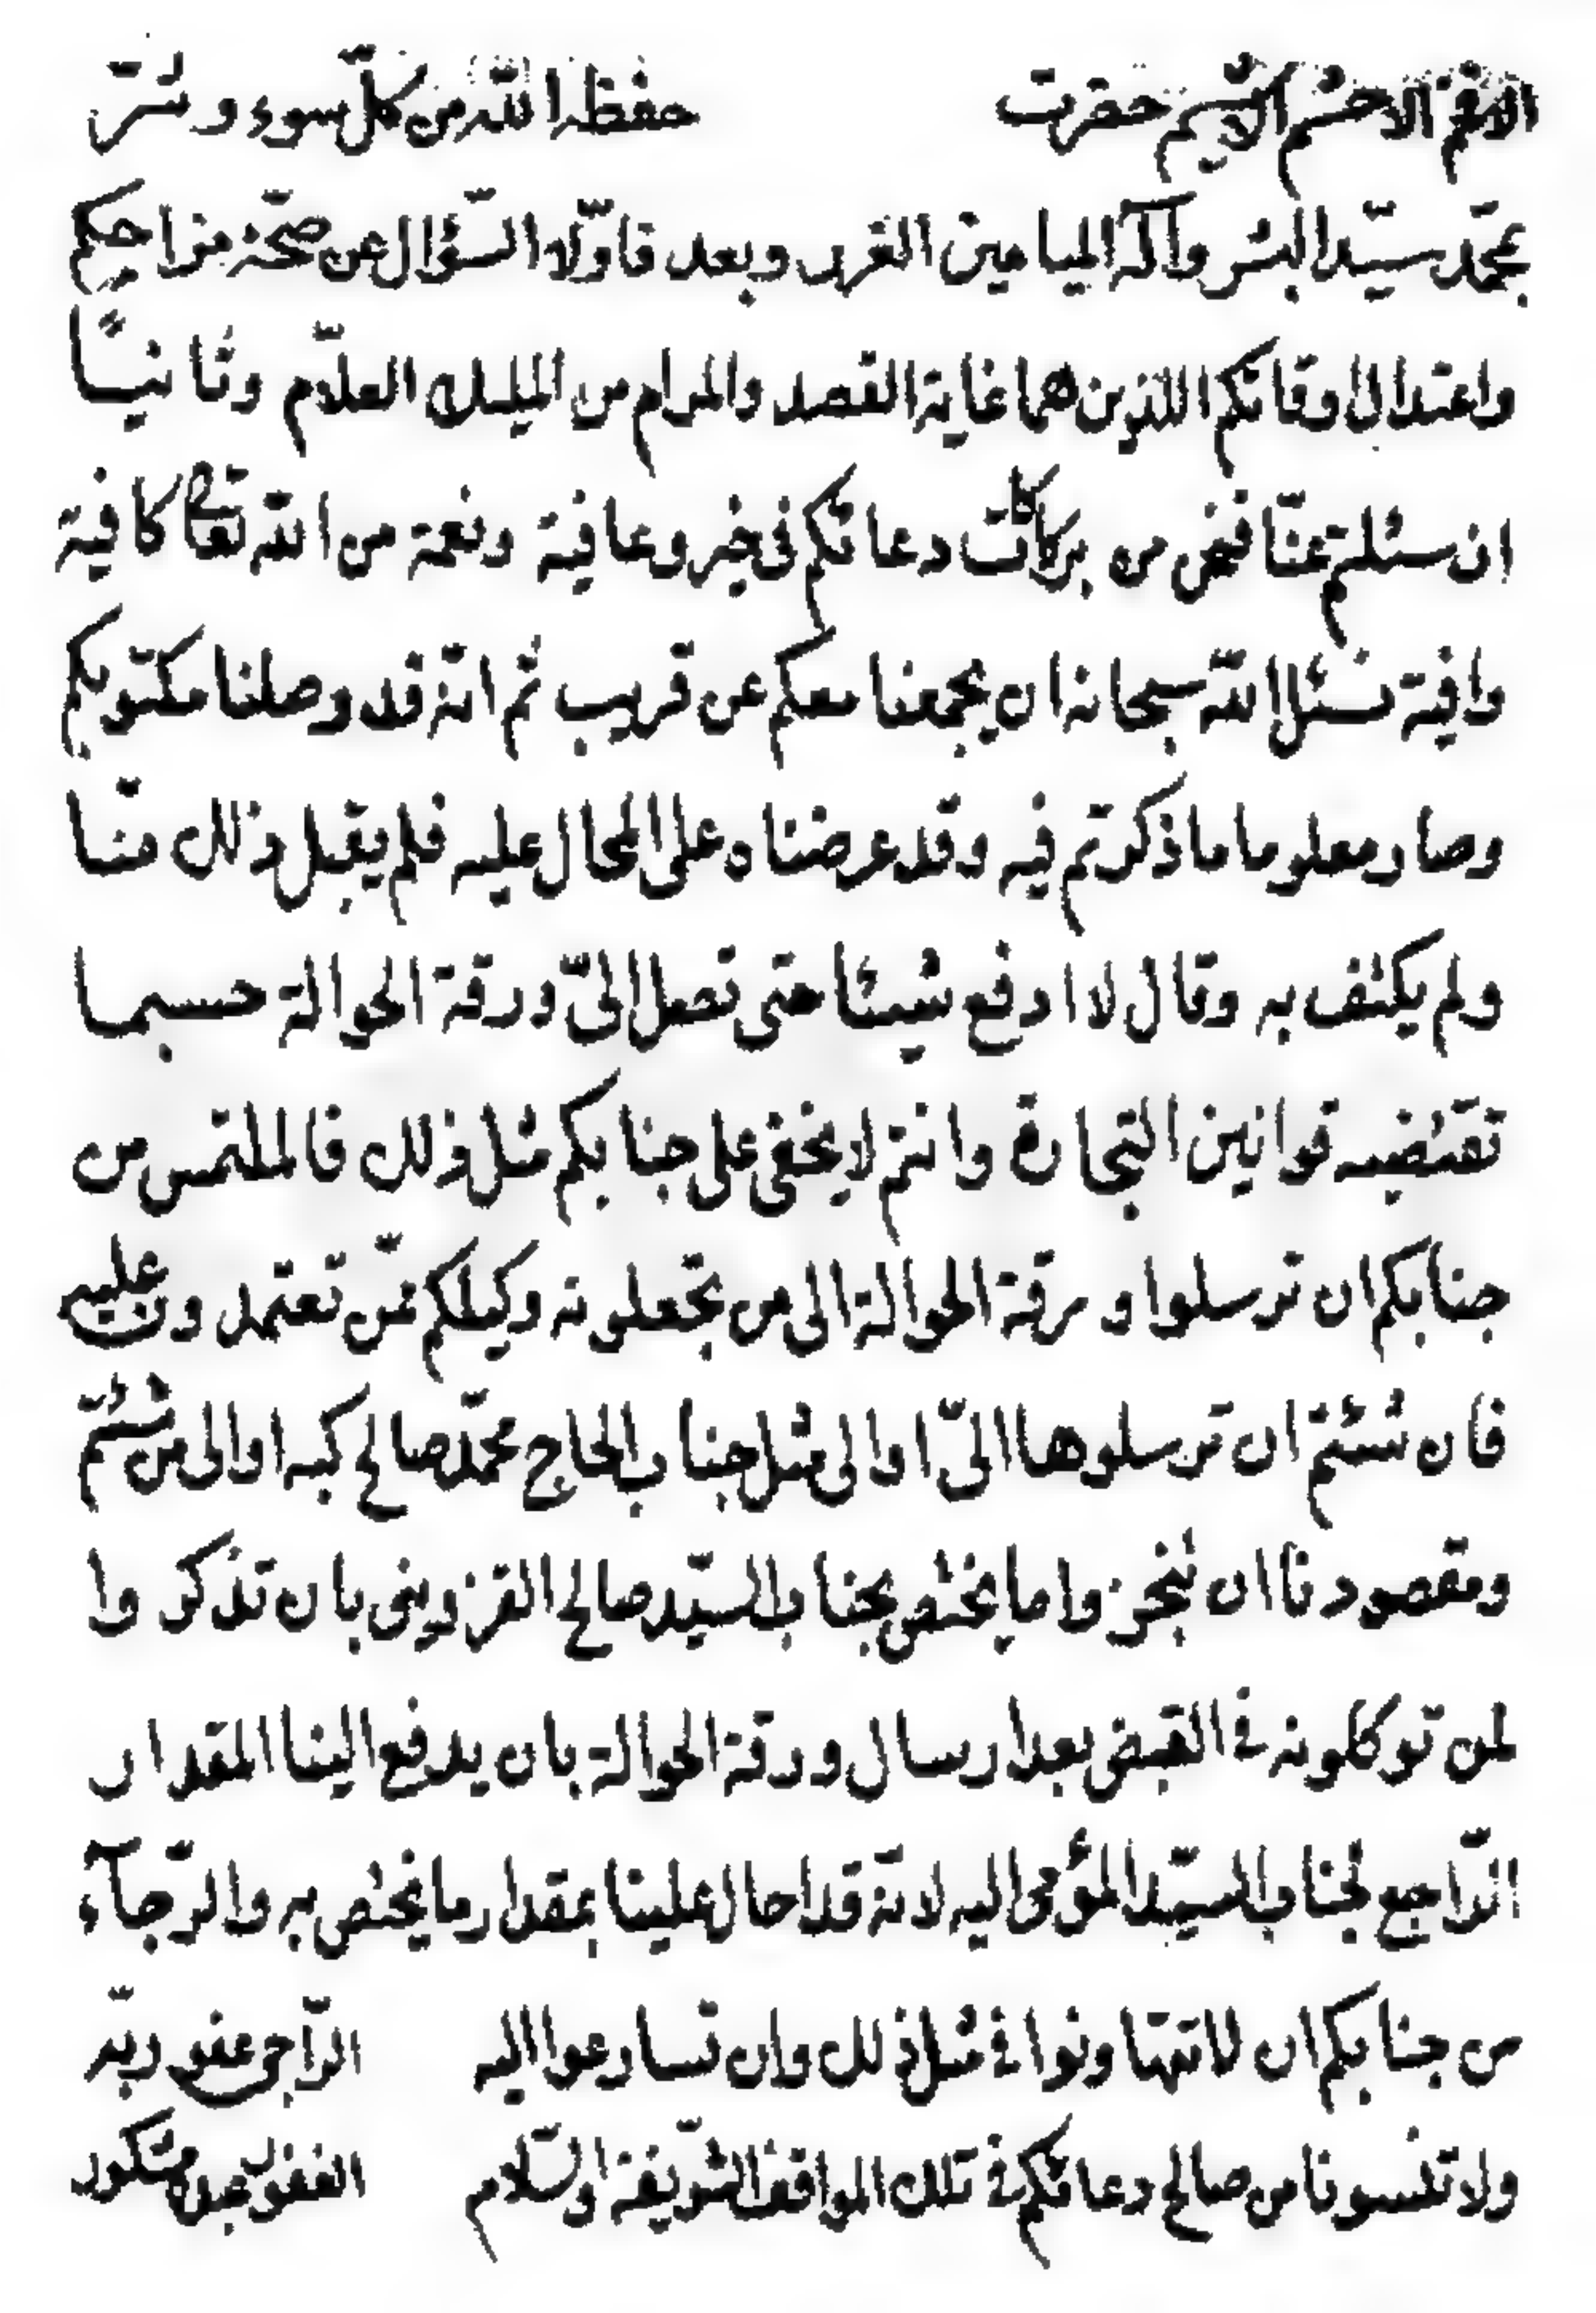 الافخم الاحشم الاشيم حضرت حفظه الله من كلّ سوء و شرّ
بمحمّد سيّد البشر وآله الميامين الغرر وبعد فاوّلا السّؤال عن صحّة مزاجكم
واعتدال اوقاتكم اللذين هما غاية القصد والمرام من المليك العلّام وثانيًا
ان سئلتم عنّا فنحن من بركات دعائكم فى خير وعافية ونعمة من الله تعالى كافية
وافية نسئل الله سبحانه ان يجمعنا معكم عن قريب ثم انّه قد وصلنا مكتوبكم
وصار معلوما ما ذكرتم فيه وقد عرضناه على المحال عليه فلم يقبل ذلك منّا
ولم يكتف به وقال لا ادفع شيئا حتى تصل الىّ ورقة الحوالة حسبما
تقتضيه قوانين التجارة وانتم لا يخفى على جنابكم مثل ذلك فالملتمس من
جنابكم ان ترسلوا ورقة الحوالة الى من تجعلونه وكيلكم ممّن تعتمدون عليه
فان شئتم ان ترسلوها الىّ او الى مثل جناب الحاج محمّد صالح كبه او الى من شئتم
ومقصودنا ان تنجزوا ما يختص بجناب السيّد صالح القزوينى بان تذكروا
لمن توكلونه فى القبض بعد ارسال ورقة الحوالة بان يدفع الينا المقدار
الرّاجع لجناب السيّد المؤمى اليه لانّه قد احال علينا بمقدار ما يختص به والرّجآء
من جنابكم ان لا تتهاونوا فى مثل ذلك وان تسارعوا اليه
ولا تنسونا من صالح دعائكم فى تلك المواقف الشّريفة والسّلام
الرّاجى عفو ربّه
الغفور عبده مشكور